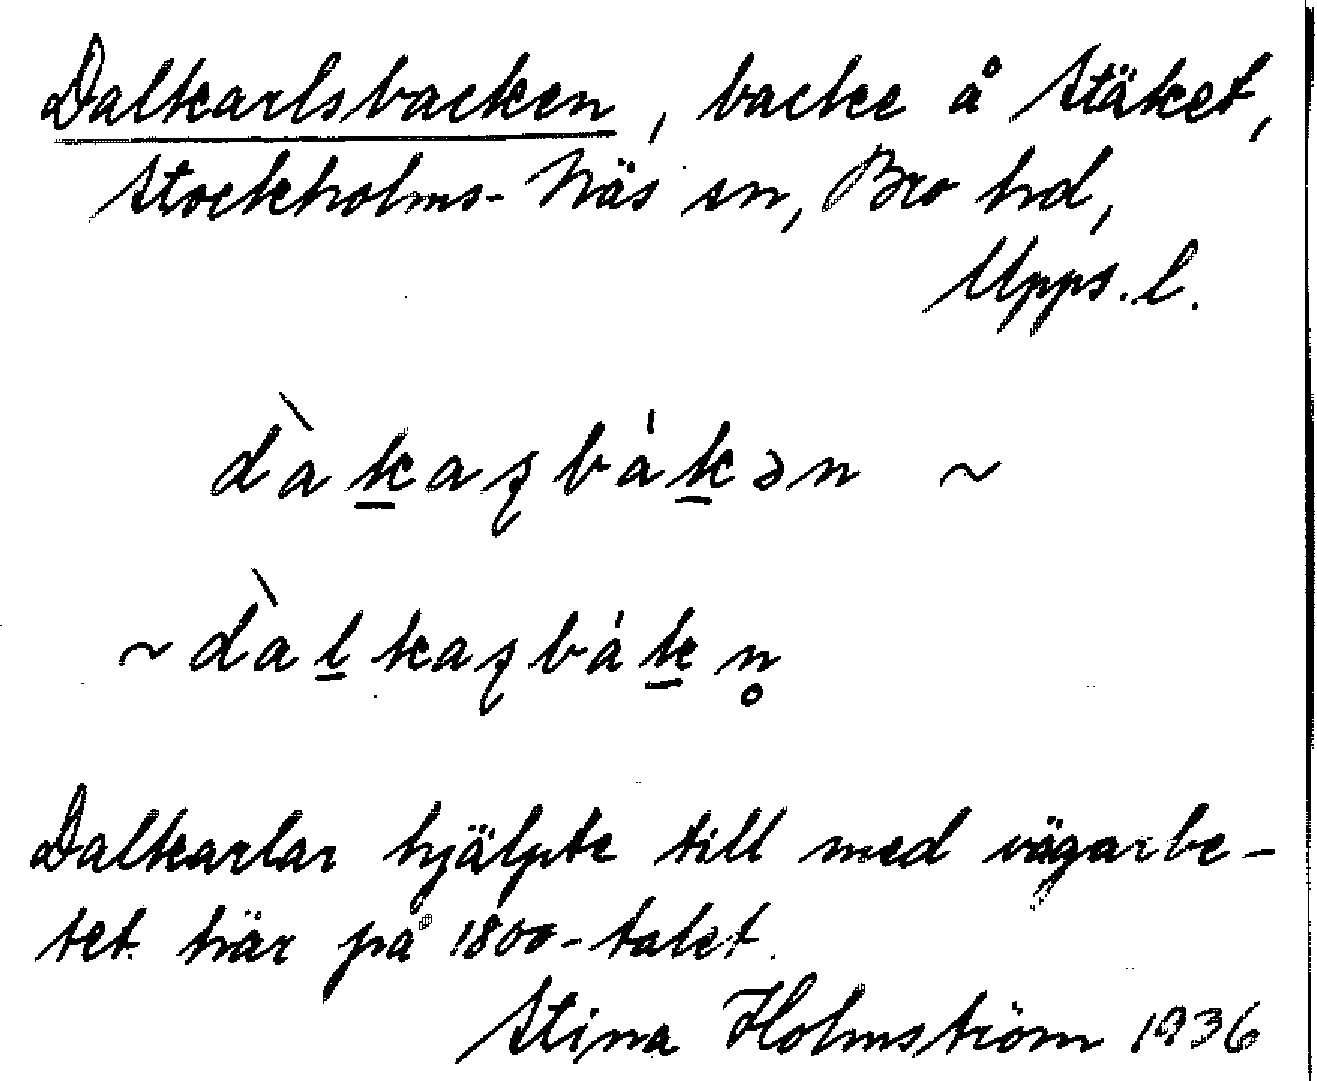 Dalkarlsbacken, backe å Stäket,
Stockholms-Näs sn, Bro hd,
Upps. l.
dàk̲aʂbák̲ən ~
~ dàl̲kaʂbák̲n̥
Dalkarlar hjälpte till med vägarbe-
tet här på 1800-talet.
Stina Holmström 1936